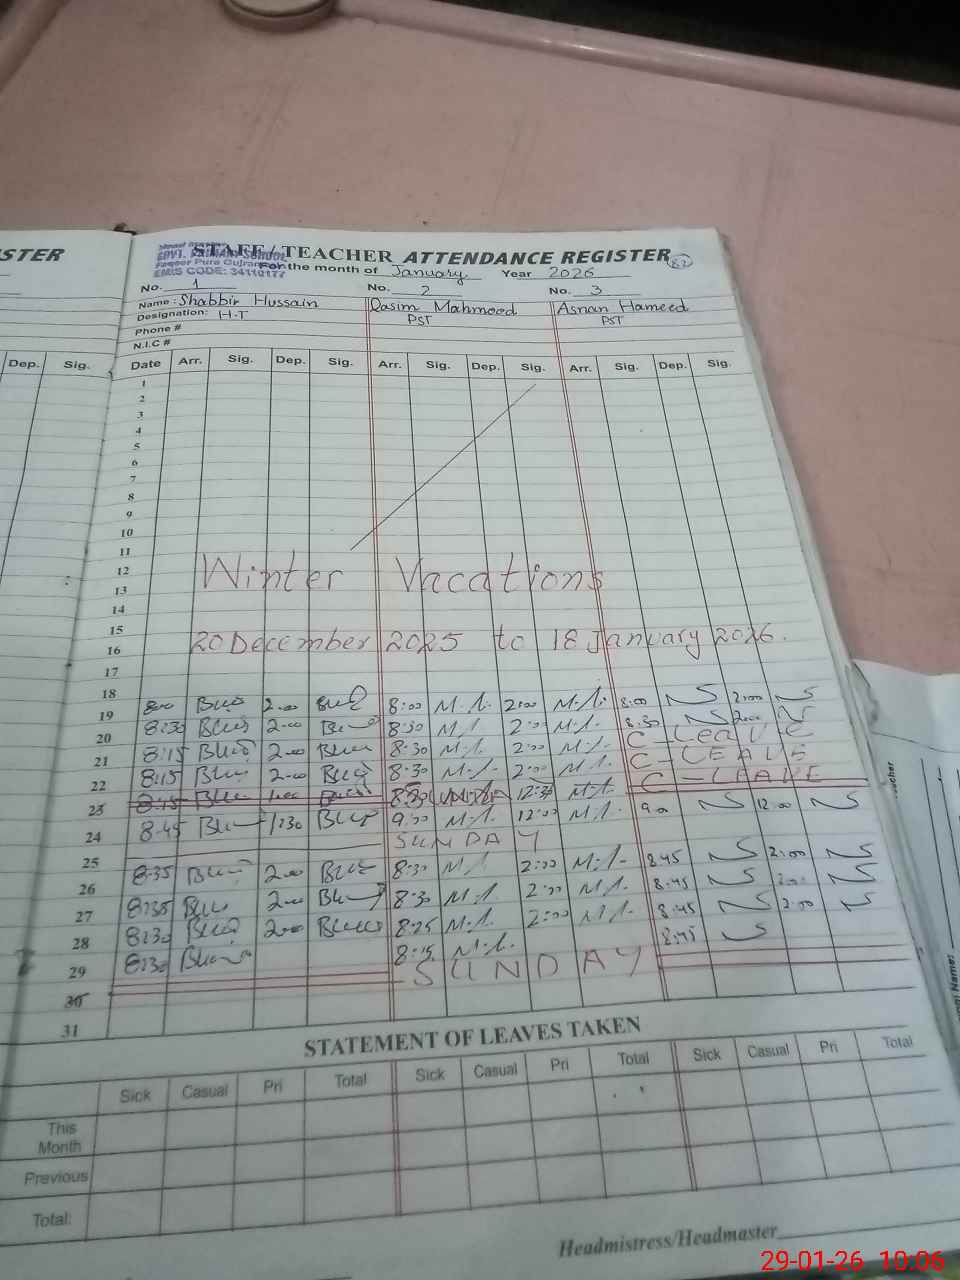 STER
STAFF/TEACHER ATTENDANCE REGISTER 82
GOVT. PRIMARY SCHOOL
Faqeer Pura Gujranwala
EMIS CODE: 34110177
For the month of January Year 2026
No. 1 No. 2 No. 3
Name: Shabbir Hussain Qasim Mahmood Asnan Hameed
Designation: H-T PST PST
Phone #
N.I.C #
Dep. Sig. Date Arr. Sig. Dep. Sig. Arr. Sig. Dep. Sig. Arr. Sig. Dep. Sig.
1
2
3
4
5
6
7
8
9
10
11
12 Winter Vacations
13
14
15
16 20 December 2025 to 18 January 2026.
17
18
19 8:00 2:00 8:00 M.1. 2:00 M.1. 8:00 2:00
20 8:30 2:00 8:30 M.1. 2:00 M.1. 8:30 2:00
21 8:15 2:00 8:30 M.1. 2:00 M.1. C-LEAVE
22 8:15 2:00 8:30 M.1. 2:00 M.1. C-LEAVE
23 8:15 1:00 8:30 12:30 M.1. C-LEAVE
24 8:45 1:30 9:00 M.1. 12:00 M.1. 9:00 12:00
25 SUNDAY
26 8:35 2:00 8:30 M.1. 2:00 M.1. 8:45 2:00
27 8:35 2:00 8:30 M.1. 2:00 M.1. 8:45 2:00
28 8:30 2:00 8:25 M.1. 2:00 M.1. 8:45 2:00
29 8:30 8:15 M.1. 8:45
30 SUNDAY
31
STATEMENT OF LEAVES TAKEN
Sick Casual Pri Total Sick Casual Pri Total Sick Casual Pri Total
This Month
Previous
Total:
Headmistress/Headmaster
29-01-26 10:06